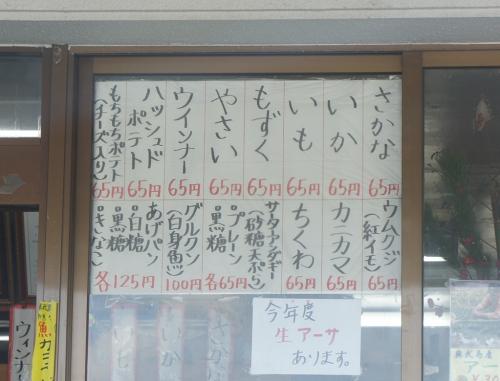 さかな
65円
いか
65円
いも
65円
もずく
65円
やさい
65円
ウインナー
65円
ハッシュド
ポテト
65円
もちもちポテト
(チーズ入り)
65円
ウムクジ
(紅イモ)
65円
カニカマ
65円
ちくわ
65円
サーターアンダギー
(砂糖天ぷら)
・プレーン
・黒糖
各65円
グルクン
(白身魚)
100円
あげパン
・白糖
・黒糖
・きなこ
各125円
今年度
生アーサ
あります。
さかな
いか
魚カミ
ウィンナ